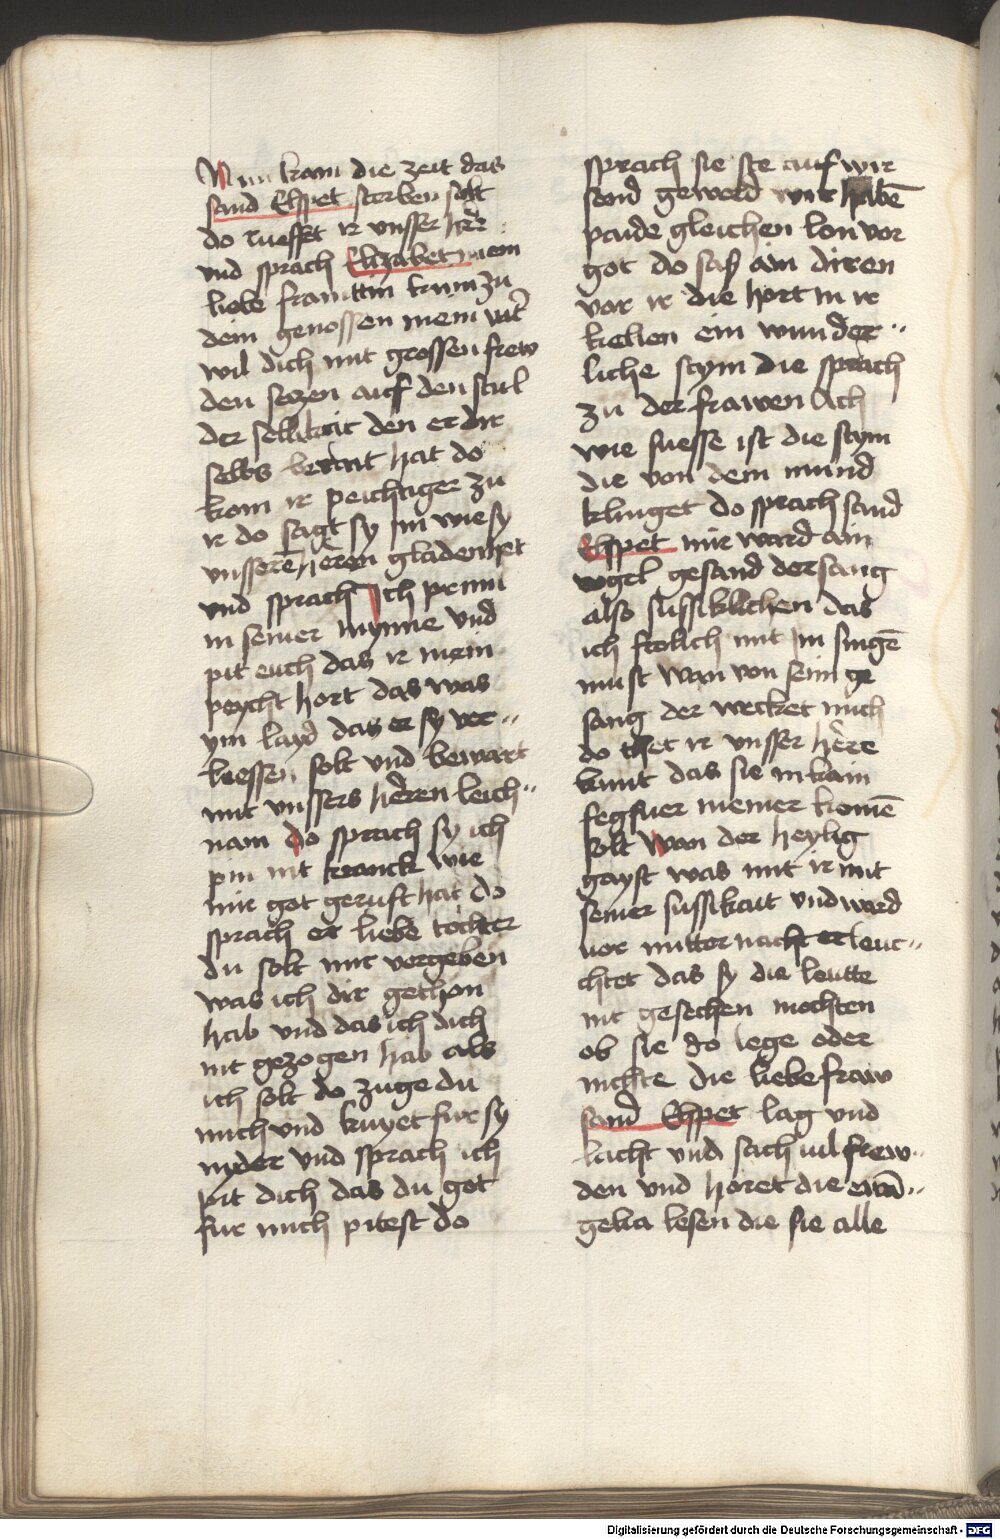 Nun kam die zeit das
sand Elspet sterben solt
do ruefft ir unsser her
und sprach Elizabet mein
liebe frawttin kum zu
dein genossen mein vat̄
wil dich mit grossen frew
den seczen auf den stul
der sellikeit den er dir
selbs berait hat do
kom ir peichtiger zu
ir do sagt sy im wie sy
unsserē heren gladen het
und sprach Ich prinn
in seiner mynne und
pit euch das ir mein
peycht hort das was
ym layd das er sy ver„
liessen solt und bewart
mit unssers heren leich„
nam do sprach sy ich
pin nit kranck wie
mir got geruft hat do
sprach er liebe tochter
du solt mir vergeben
was ich dir gethon
hab und das ich dich
nit gezogen hab als
ich solt do zuge du
mich und knyet fur sy
nyder und sprach ich
pit dich das du got
fur mich pitest do
sprach sie ste auf wir
send gewerd wir habē
paide gleichen lon vor
got do sas ain diren
vor ir die hort in ir
kellen ein wunder„
liche stym die sprach
zu der frawen Ach
wie suesse ist die stym
die von dem mund
klinget do sprach sand
Elspet mir ward ain
vogel gesand der sang
also sussiklichen das
ich frolich mit im singē
must wan von seim ge
sang der wecket mich
do thet ir unsser here
kunt das sie in kain
fegfuer niemer komē
solt Wan der heylig
gayst was mit ir mit
seiner sussikait und ward
vor mitternacht erleuc„
chtet das sy die leutte
nit gesechen mochten
ob sie do lege oder
nichte die liebe fraw
sand Elspet lag und
lacht und sach vil frew„
den und horet die ewā„
gelia lesen die sie alle
Digitalisierung gefördert durch die Deutsche Forschungsgemeinschaft - DFG